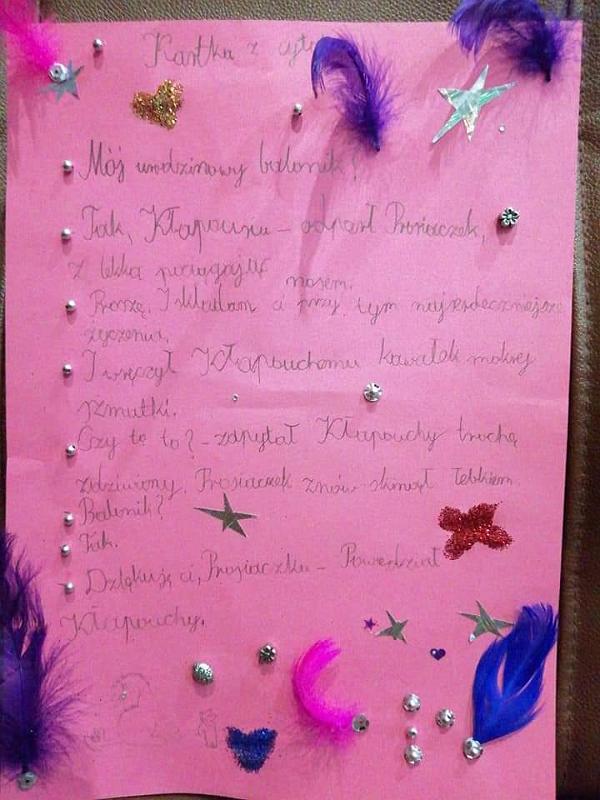 Kartka z
Mój urodzinowy balonik?
Tak, Kłapousku - odparł Prosiaczek,
z lekka pociągając nosem.
Proszę. I składam ci przy tym najserdeczniejsze
życzenia.
I wręczył Kłapouchemu kawałek mokrej
szmatki.
Czy to to? - zapytał Kłapouchy trochę
zdziwiony. Prosiaczek znów skinął łebkiem.
Balonik?
Tak.
Dziękuję ci, Prosiaczku - Powiedział
Kłapouchy.